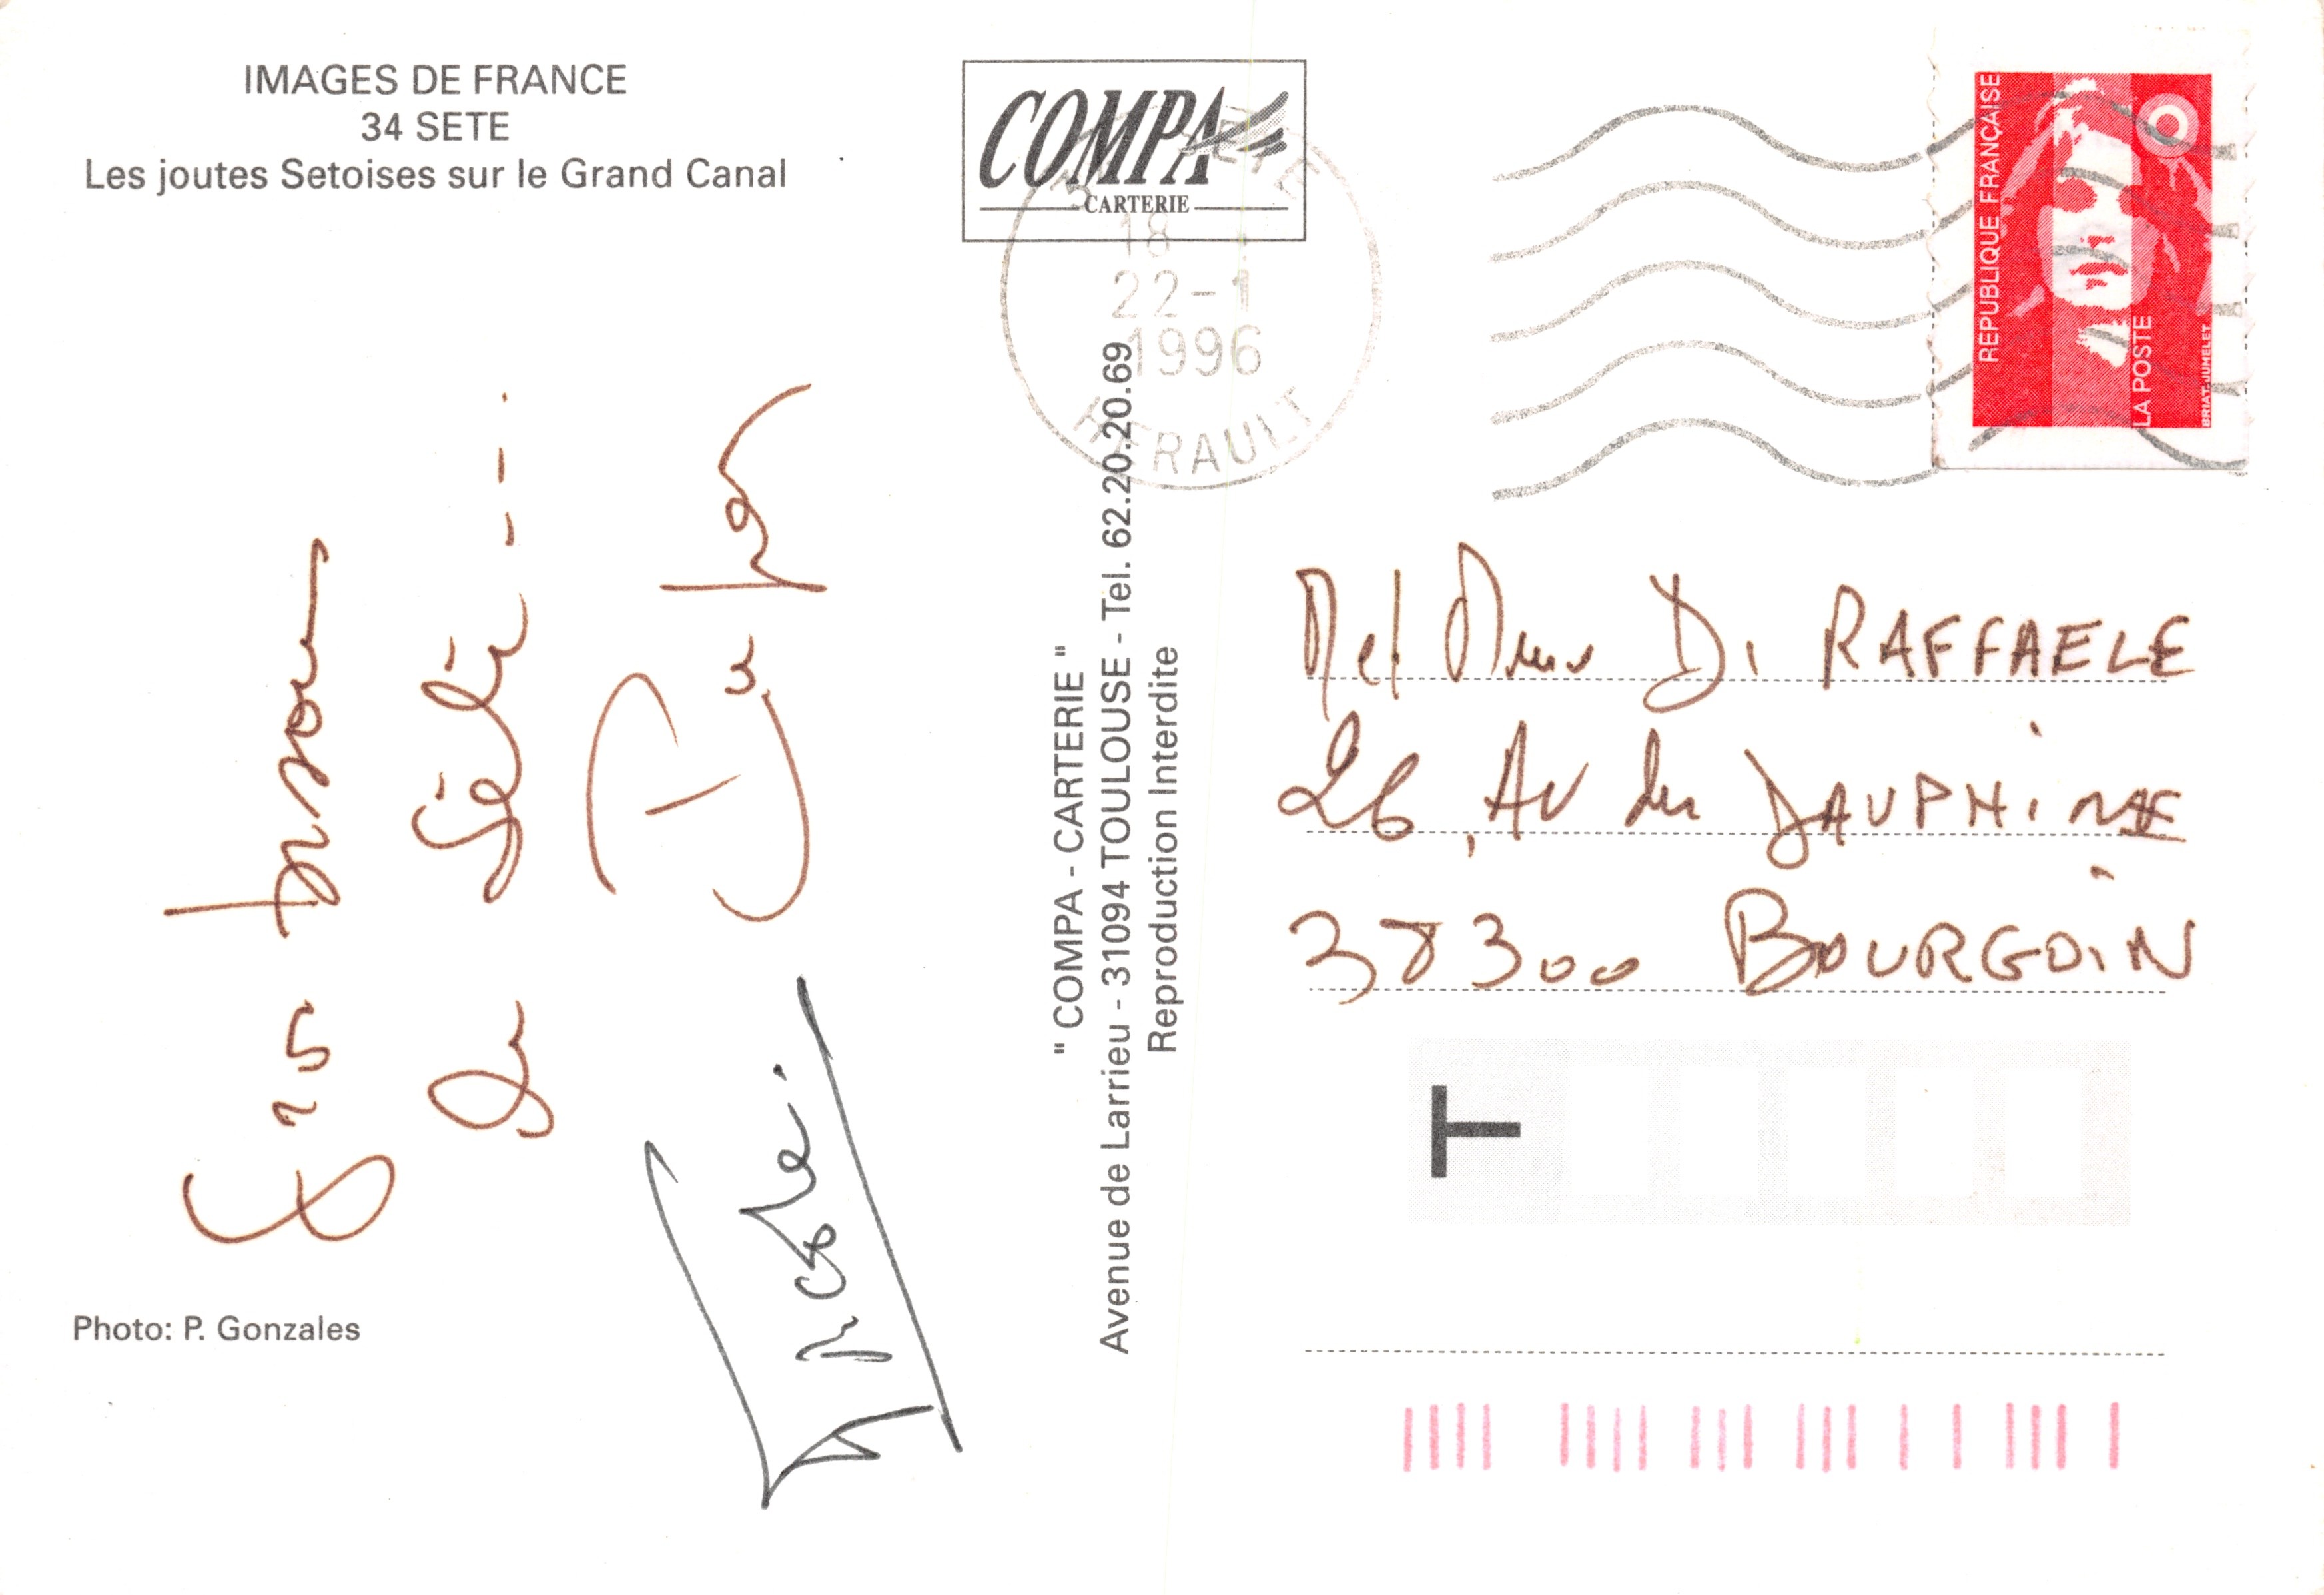 IMAGES DE FRANCE
34 SETE
Les joutes Setoises sur le Grand Canal
COMPA
CARTERIE
18
22-1
1996
HERAULT
REPUBLIQUE FRANÇAISE
LA POSTE
BRIAT-JUMELET
Gros bisous
de Sète
Nicole.
Photo: P. Gonzales
" COMPA - CARTERIE "
Avenue de Larrieu - 31094 TOULOUSE - Tel. 62.20.20.69
Reproduction Interdite
M et Mme Di RAFFAELE
26, AV du DAUPHINE
38300 BOURGOIN
T